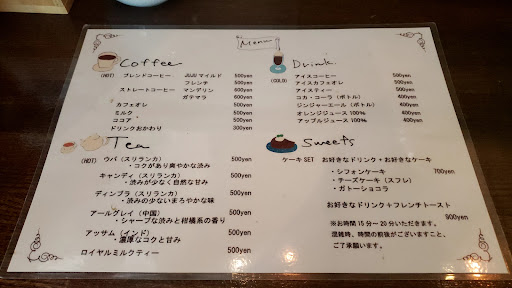 Menu
Coffee
(HOT) ブレンドコーヒー JUJUマイルド 500yen
フレンチ 500yen
ストレートコーヒー マンデリン 400yen
ガテマラ 600yen
カフェオレ 500yen
ミルク 500yen
ココア 500yen
ドリンクおかわり 300yen
Tea
(HOT) ウバ（スリランカ） 500yen
・コクがあり爽やかな渋み
キャンディ（スリランカ） 500yen
・渋みが少なく自然な甘み
ディンブラ（スリランカ） 500yen
・渋みの少ないまろやかな味
アールグレイ（中国） 500yen
・シャープな渋みと柑橘系の香り
アッサム（インド） 500yen
・濃厚なコクと甘み
ロイヤルミルクティー 500yen
Drink
(COLD) アイスコーヒー 500yen
アイスカフェオレ 500yen
アイスティー 500yen
コカ・コーラ（ボトル） 400yen
ジンジャーエール（ボトル） 400yen
オレンジジュース 100% 400yen
アップルジュース 100% 400yen
Sweets
ケーキ SET お好きなドリンク＋お好きなケーキ
・シフォンケーキ 700yen
・チーズケーキ（スフレ）
・ガトーショコラ
お好きなドリンク＋フレンチトースト
900yen
※お時間 15 分～ 20 分いただきます。
混雑時、時間の前後がございますこと、
ご了承願います。